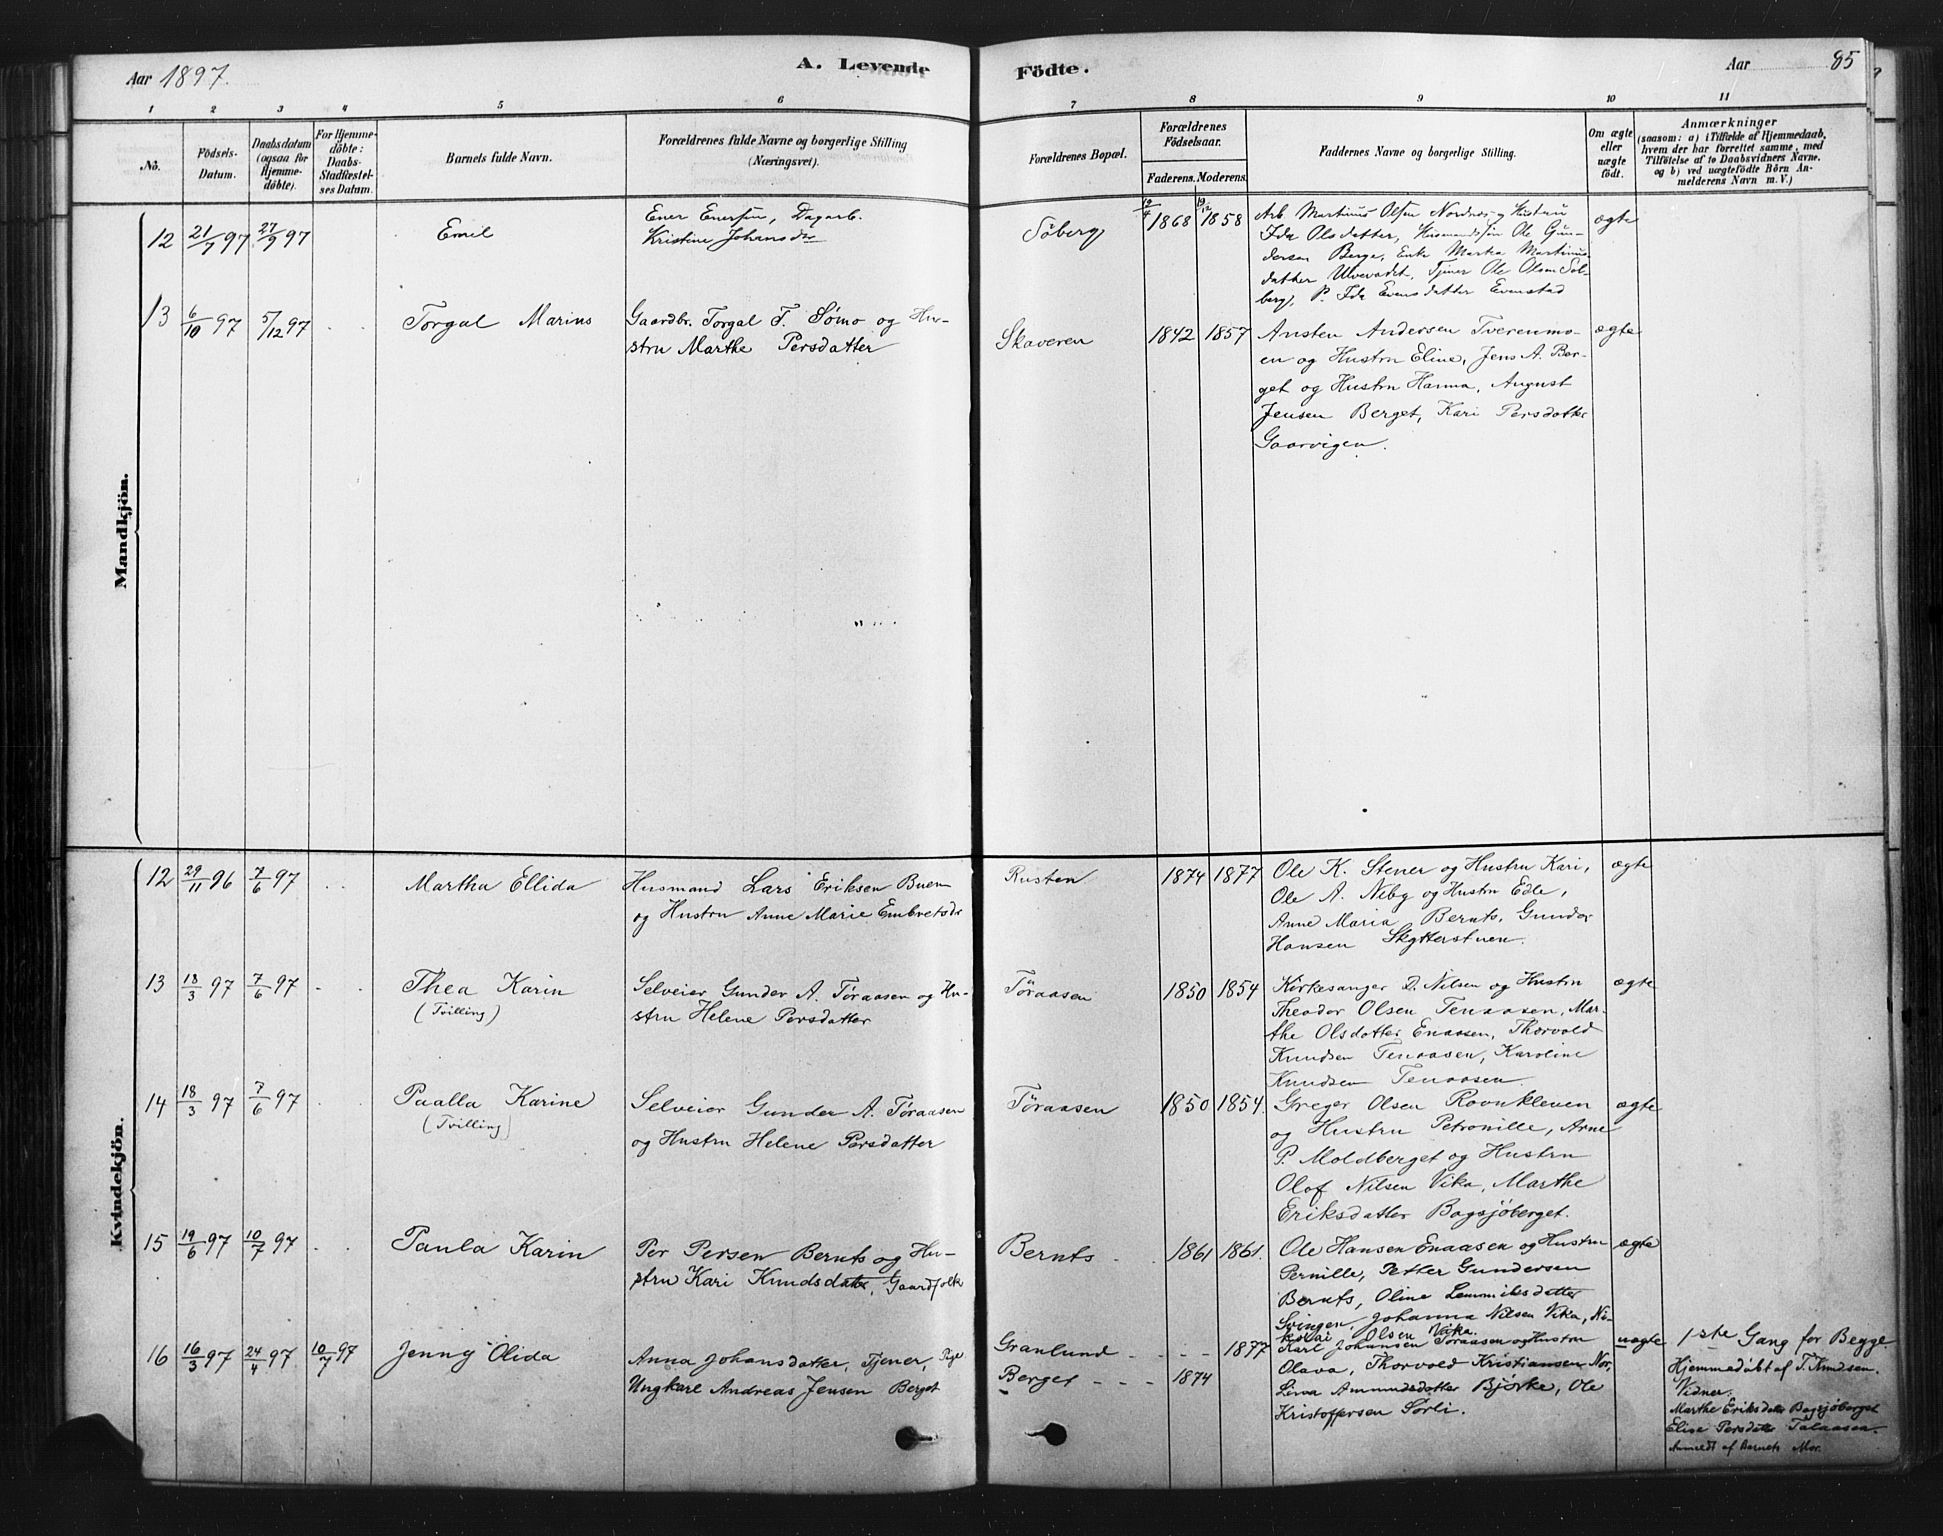 Aar 1897.
A. Levende
Födte.
Aar 85
1 2 3 4 5 6 7 8 9 10 11
No.
Födsels-
Datum.
Daabsdatum
(ogsaa for
Hjemme-
döbte).
For Hjemme-
döbte:
Daabs-
Stadfæstel-
ses Datum.
Barnets fulde Navn.
Forældrenes fulde Navne og borgerlige Stilling
(Næringsvei).
Forældrenes Bopæl.
Forældrenes
Födselsaar.
Faderens. Moderens.
Faddernes Navne og borgerlige Stilling.
Om ægte
eller
uægte
födt.
Anmærkninger
(saasom: a) i Tilfælde af Hjemmedaab,
hvem der har forrettet samme, med
Tilföielse af to Daabsvidners Navne,
og b) ved uægtefödte Börn An-
melderens Navn m. V.)
Mandkjön.
12 21/7 97 27/9 97
Emil
Ener Enersen, Dagarb.
Kristine Johansdr
Söberg
19/4 1868 19/12 1858
Arb. Martinus Olsen Nordnes og Hustru
Ida Olsdatter, Husmandssön Ole Gun-
dersen Berge, Enke Martha Martinus-
datter Ulvevadet, Tjener Ole Olsen Söl-
berg, P. Ida Evensdatter Evenstad
ægte
13 6/10 97 5/12 97
Torgal Marius
Gaardbr. Torgal T. Sømo og Hu-
stru Marthe Persdatter
Skaveren
1842 1857
Austen Andersen Tverenmo-
en og Hustru Eline, Jens A. Ber-
get og Hustru Hanna, August
Jensen Berget, Kari Persdatter
Gaarvigen.
ægte
Kvindekjön.
12 29/11 96 7/6 97
Martha Ellida
Husmand Lars Eriksen Buen
og Hustru Anne Marie Embretsdr
Rusten
1874 1877
Ole K. Stener og Hustru Kari,
Ole A. Neby og Hustru Edle,
Anne Maria Bernts, Gunder
Hansen Skytterstuen.
ægte
13 18/3 97 7/6 97
Thea Karin
(Tvilling)
Selveier Gunder A. Töraasen og Hu-
stru Helene Persdatter
Töraasen
1850 1854
Kirkesanger D. Nilsen og Hustru
Theodor Olsen Tenaasen, Mar-
the Olsdatter Enaasen, Thorvald
Knudsen Tenaasen, Karoline
Knudsen Tenaasen.
ægte
14 18/3 97 7/6 97
Paalla Karine
(Tvilling)
Selveier Gunder A. Töraasen
og Hustru Helene Persdatter
Töraasen
1850 1854.
Greger Olsen Ravnkleven
og Hustru Petronille, Arne
P. Moldberget og Hustru
Olof Nilsen Vika, Marthe
Eriksdatter Bagsjöberget.
ægte
15 19/6 97 10/7 97
Paula Karin
Per Persen Bernts og Hu-
stru Kari Knudsdatter, Gaardfolk
Bernts
1861 1861.
Ole Hansen Enaasen og Hustru
Pernille, Petter Gundersen
Bernts, Oline Lemmiksdatter
Svingen, Johanna Nilsen Vika, Ni-
kolai Olsen Vika.
ægte
16 16/3 97 24/4 97 10/7 97
Jenny Olida
Anna Johansdatter, Tjener, Pige
Ungkarl Andreas Jensen Berget
Granlund 1877
Berget 1874
Karl Johansen Töraasen og Hustru
Olava, Thorvald Kristiansen Nor,
Lina Ammundsdatter Björke, Ole
Kristoffersen Sörli.
uægte
1ste Gang for Begge.
Hjemmedöbt af T. Knudsen.
Vidner:
Marthe Eriksdatter Bagsjöberget
Elise Persdatter Talaasen.
Anmeldt af Barnets Mor.